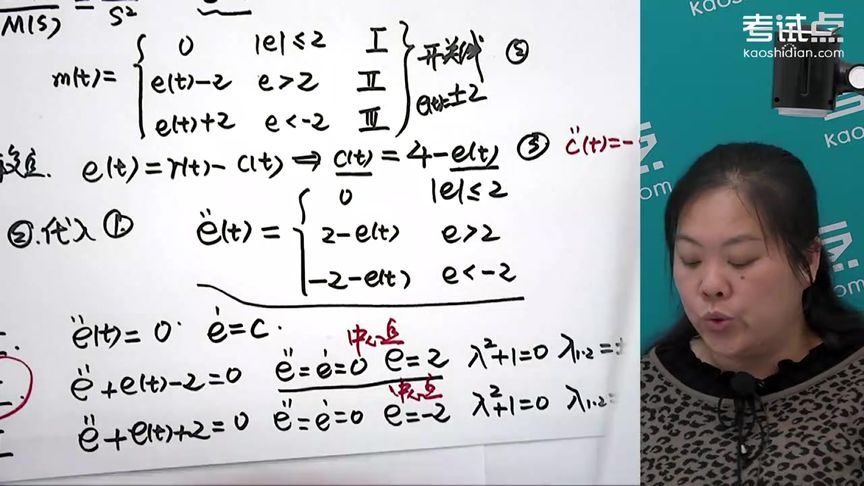 M(s) = s²
m(t) = { 0 |e| ≤ 2 Ⅰ
e(t)-2 e > 2 Ⅱ
e(t)+2 e < -2 Ⅲ } 开关线 ②
e(t)=±2
e(t) = r(t) - c(t) ⇒ c(t) = 4 - e(t) ③ c̈(t) = -
②.代入① ë(t) = { 0 |e| ≤ 2
2 - e(t) e > 2
-2 - e(t) e < -2
ë(t) = 0 ė = c.
中心点
ë + e(t) - 2 = 0 ë = ė = 0 e = 2 λ² + 1 = 0 λ1.2 = ±
中心点
ë + e(t) + 2 = 0 ë = ė = 0 e = -2 λ² + 1 = 0 λ1.2 =
考试点
kaoshidian.com
kaos
kao
om